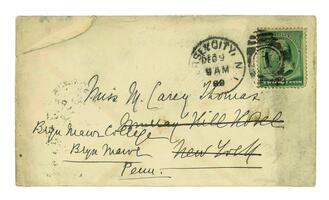 RSEY CITY, N
DEC 9
9 AM
89
Miss M. Carey Thomas
Murray Hill Hotel
Bryn Mawr College
New York
Bryn Mawr
Penn.